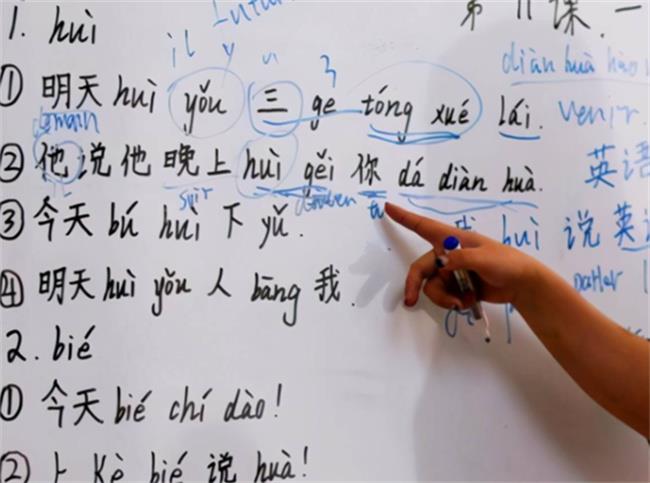 第 11 课.一
1. huì
il y
diàn huà hào
① 明天 huì yǒu 三 ge tóng xué lái. venir.
② 他 说 他 晚 上 huì gěi 你 dá diàn huà. 英语
soir tu
③ 今天 bú huì 下 yǔ.
huì 说 英
④ 明天 huì yǒu 人 bāng 我.
2. bié
① 今天 bié chí dào!
② 上 Kè bié 说 huà!